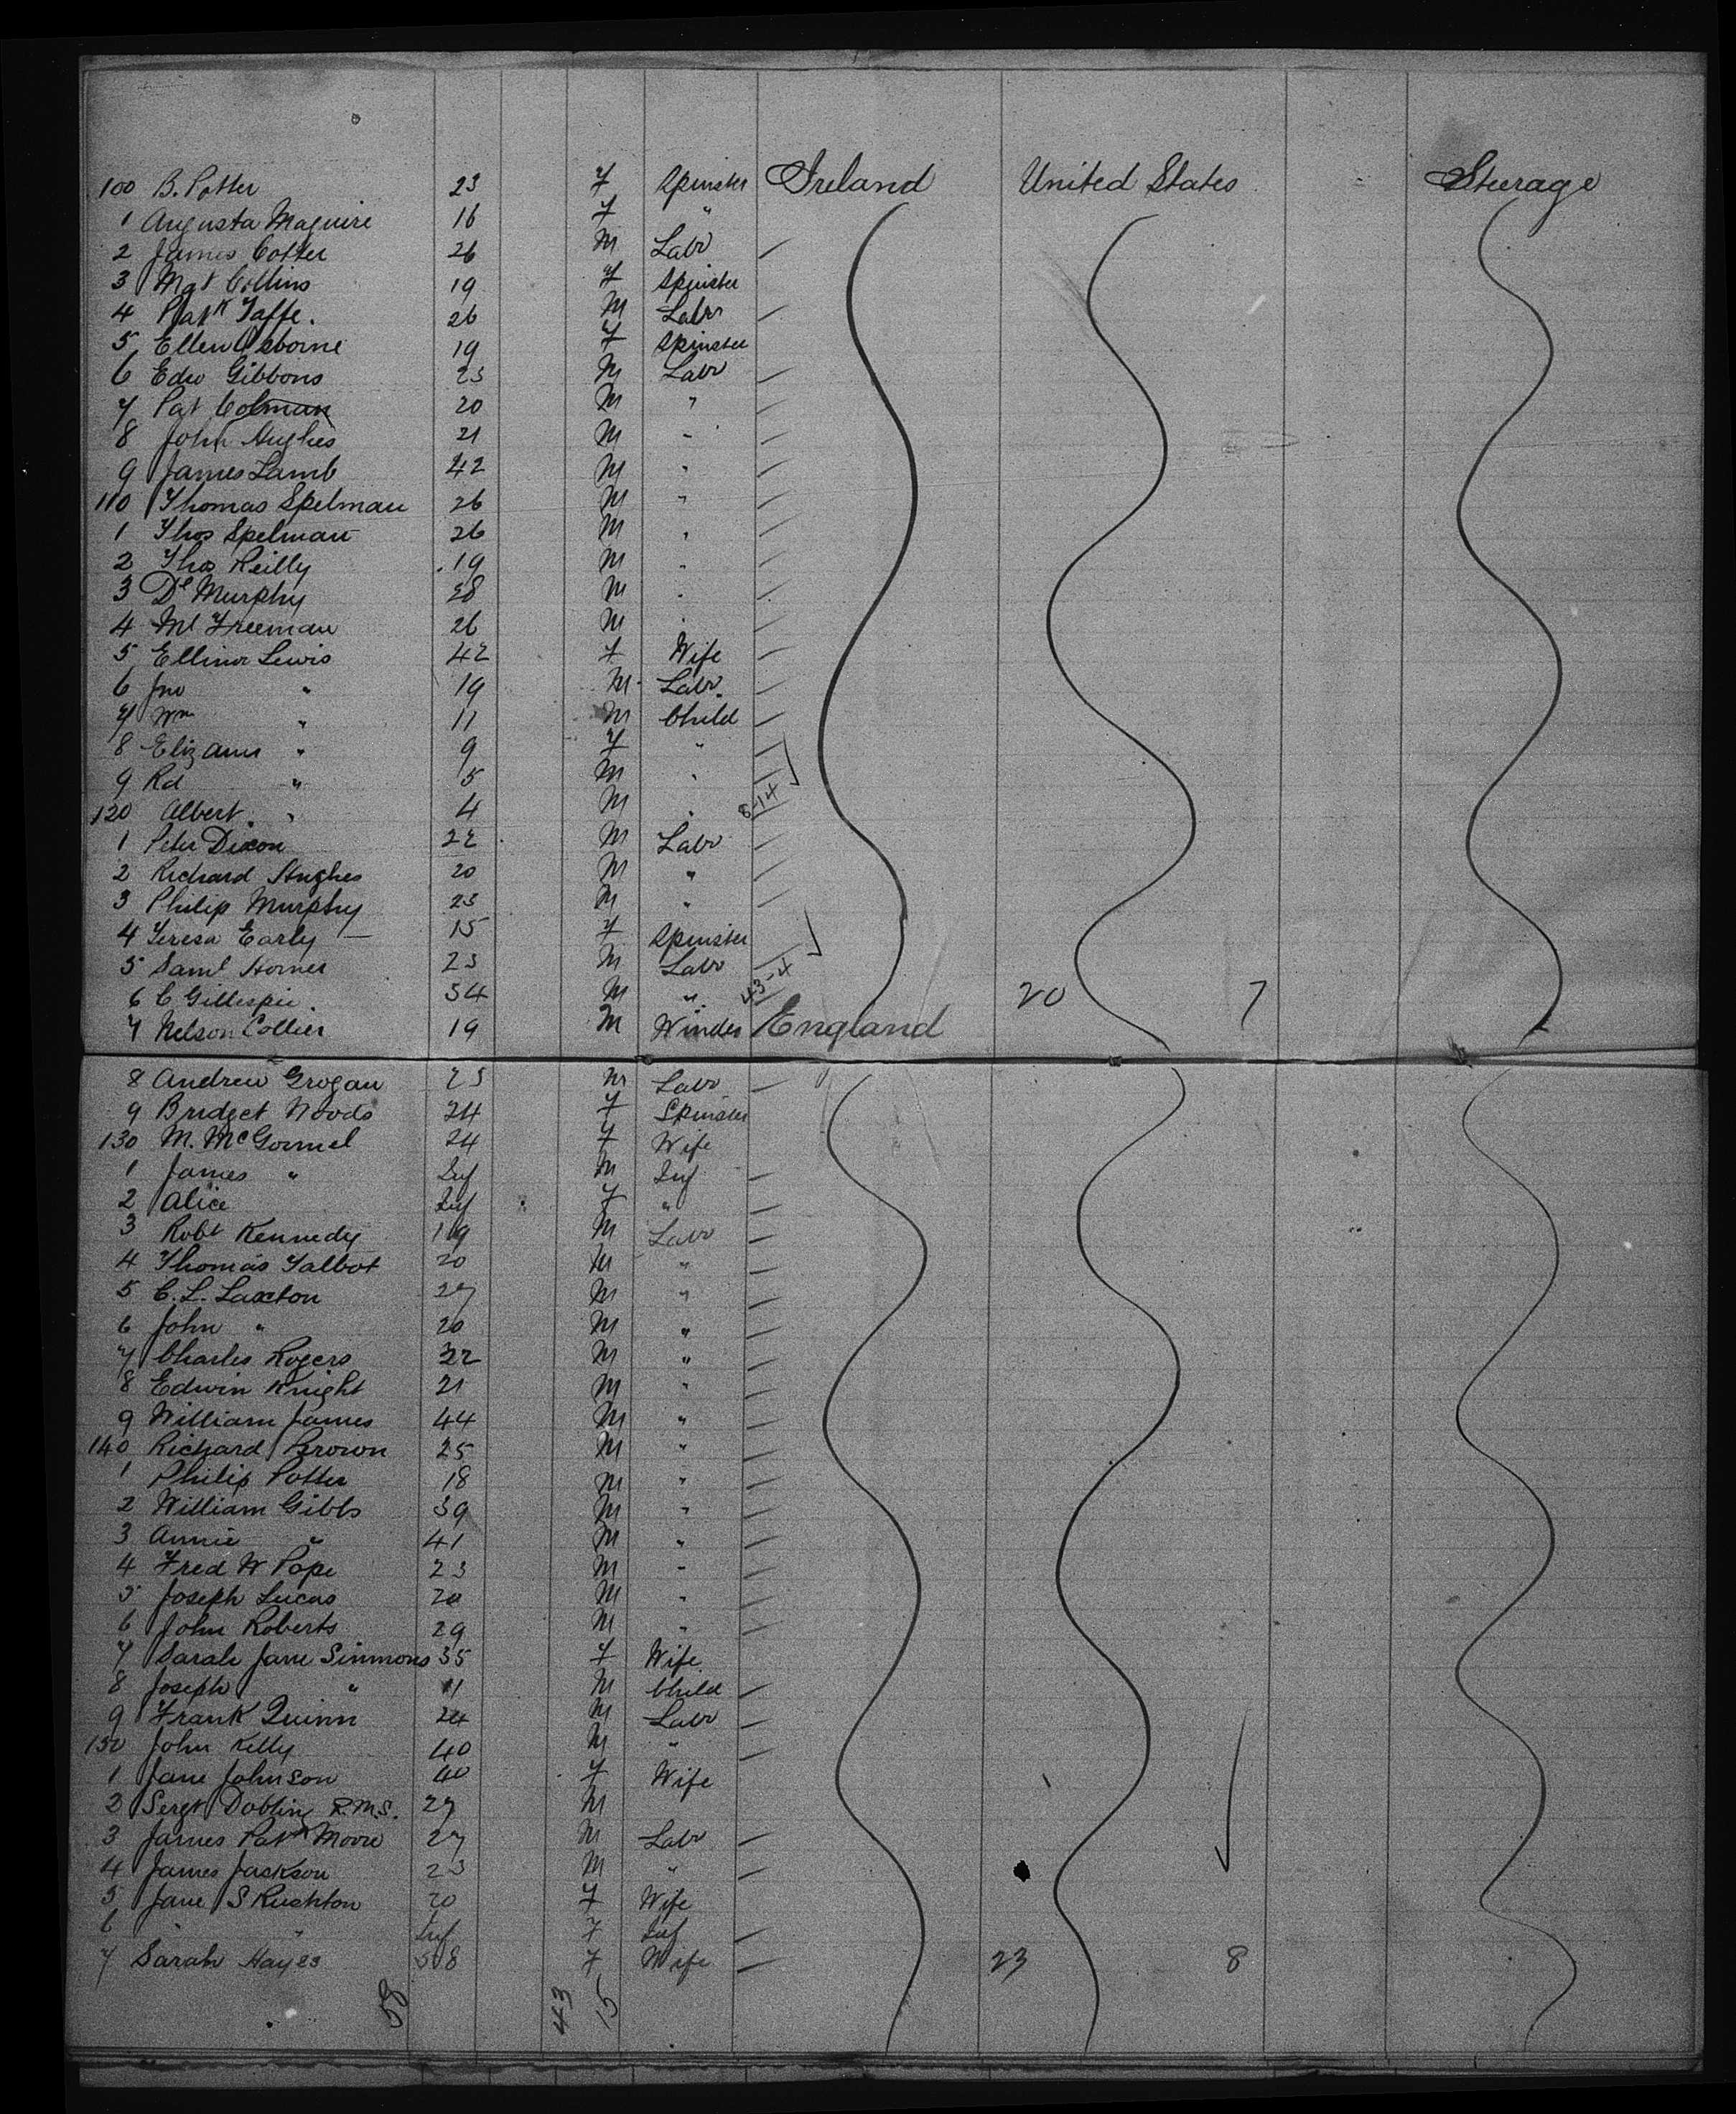 100 B. Potter 23 F Spinster Ireland United States Steerage
1 Augusta Maguire 16 F "
2 James Cotter 26 M Labr
3 Mgt Collins 19 F Spinster
4 Patk Taffe. 26 M Labr
5 Ellen Osborne 19 F Spinster
6 Edw Gibbons 23 M Labr
7 Pat Colman 20 M "
8 John Hughes 21 M "
9 James Lamb 42 M "
110 Thomas Spelman 26 M "
1 Thos Spelman 26 M "
2 Thos Reilly 19 M "
3 Dl Murphy 28 M "
4 Ml Freeman 26 M "
5 Ellinor Lewis 42 F Wife
6 Jno " 19 M Labr.
7 Wm " 11 M Child
8 Eliz Ann " 9 F "
9 Rd " 5 M "
120 Albert " 4 M " 8-14
1 Peter Dixon 22 M Labr
2 Richard Hughes 20 M "
3 Philip Murphy 23 M "
4 Teresa Early 15 F Spinster
5 Saml Horner 23 M Labr
6 C Gillespie 34 M " 43-4 20 7
7 Nelson Collier 19 M Winder England
8 Andrew Grogan 23 M Labr
9 Bridget Woods 24 F Spinster
130 M. McGormel 24 F Wife
1 James " Inf M Inf
2 Alice Inf F "
3 Robt Kennedy 19 M Labr
4 Thomas Talbot 20 M "
5 C. L. Laxton 27 M "
6 John " 20 M "
7 Charles Rogers 32 M "
8 Edwin Knight 21 M "
9 William James 44 M "
140 Richard Brown 25 M "
1 Philip Potter 18 M "
2 William Gibbs 39 M "
3 Annie " 41 M "
4 Fred W Pope 23 M "
5 Joseph Lucas 20 M "
6 John Roberts 29 M "
7 Sarah Jane Simmons 35 F Wife
8 Joseph " 11 M Child
9 Frank Quinn 24 M Labr
150 John Kelly 40 M "
1 Jane Johnson 40 F Wife
2 Sergt Doblin R.M.S. 27 M
3 James Patk Moore 27 M Labr
4 James Jackson 23 M "
5 Jane S Rushton 20 F Wife
6 " " Inf F Inf
7 Sarah Hayes 58 F Wife 23 8
58 43 15